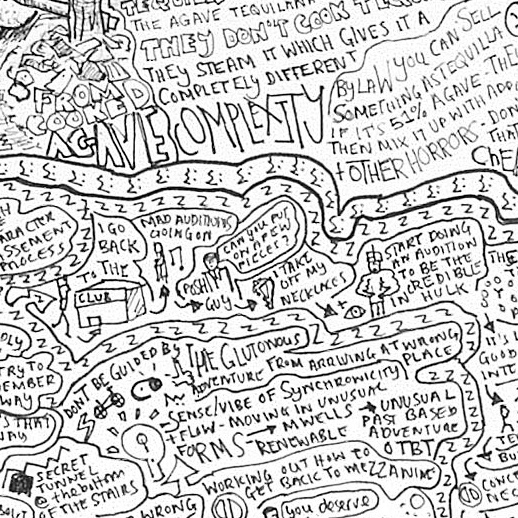 THE AGAVE TEQUILANA
THEY DON'T COOK
THEY STEAM IT WHICH GIVES IT A
COMPLETELY DIFFERENT
COMPLEXITY
FROM
COOKED
AGAVE
BY LAW YOU CAN SELL
SOMETHING AS TEQUILA
IF IT'S 51% AGAVE - THE
THEN MIX IT UP WITH
+ OTHER HORRORS - DON
THAT
I GO
BACK
TO THE
CLUB
MAD AUDITIONS
GOING ON
CAN YOU PUT
ON A FEW
POSH
GUY
I TAKE
OFF MY
NECKLACES
START DOING
AN AUDITION
TO BE THE
INCREDIBLE
HULK
PROCESS
TRY TO
WAY
THAT'S
DON'T BE GUIDED BY
THE GLUTONOUS
ADVENTURE FROM ARRIVING AT WRONG
PLACE
SENSE/VIBE OF SYNCHRONICITY
+ FLOW - MOVING IN UNUSUAL
FORMS
→ MWELLS → UNUSUAL
RENEWABLE
PAST BASED
ADVENTURE
OTBT
SECRET
TUNNEL
@ the bottom
OF THE STAIRS
WORKING OUT HOW TO
GET BACK TO MEZZANINE
WRONG
you deserve
IT'S
GOOD
INTE